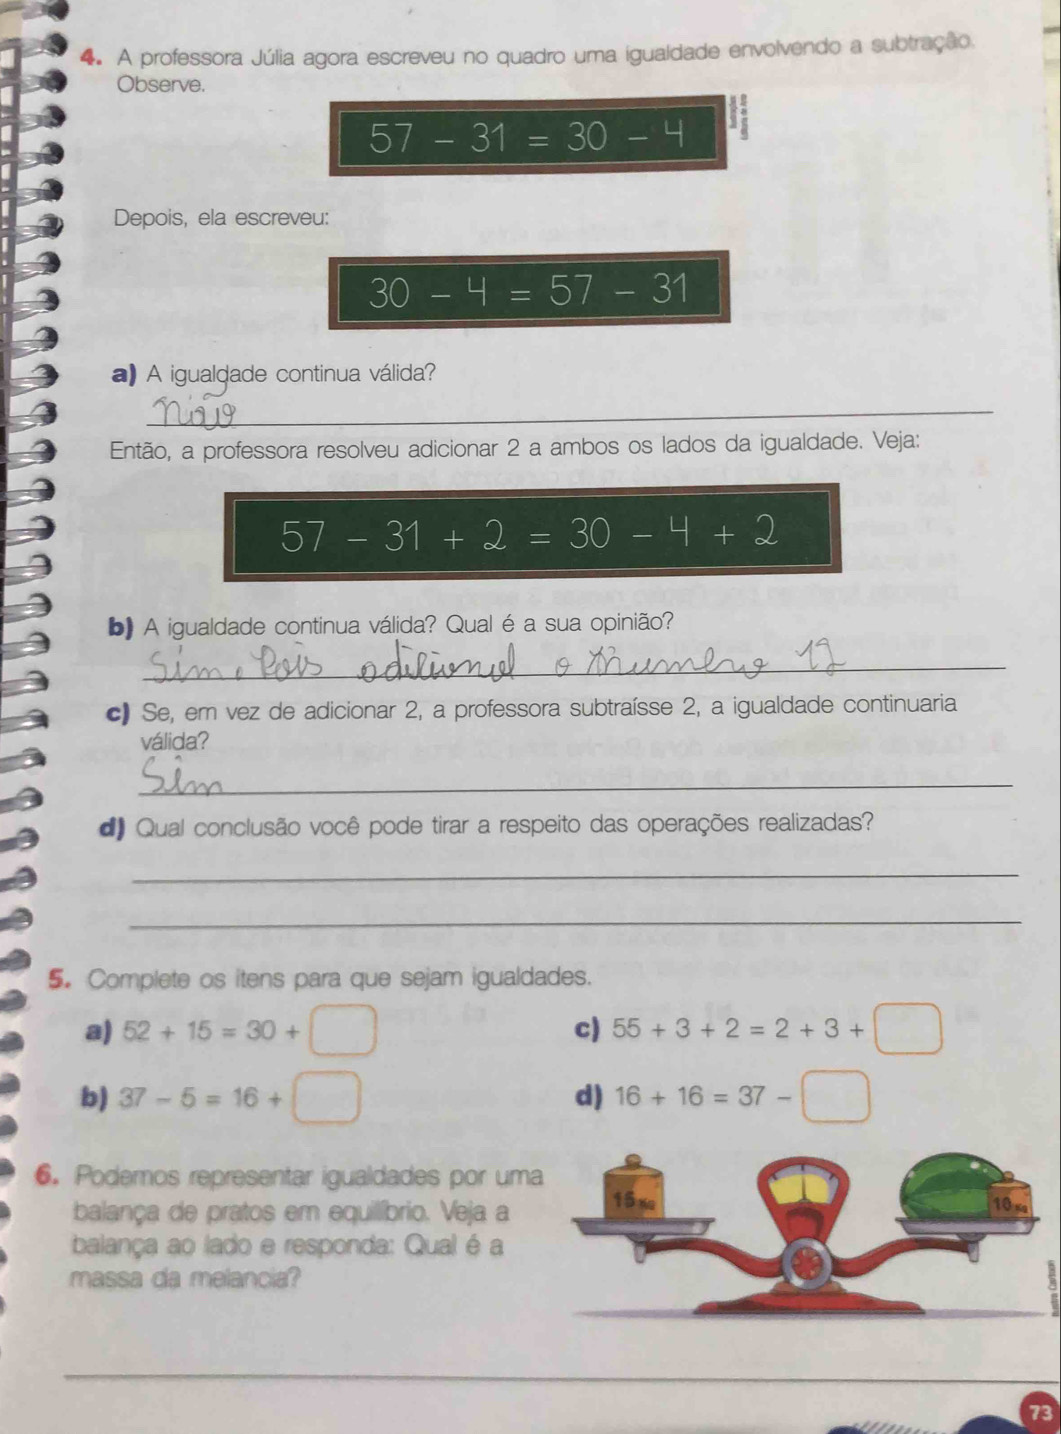 4. A professora Júlia agora escreveu no quadro uma igualdade envolvendo a subtração.
Observe.
57 - 31 = 30 - 4
Depois, ela escreveu:
30 - 4 = 57 - 31
a) A igualdade continua válida?
não
Então, a professora resolveu adicionar 2 a ambos os lados da igualdade. Veja:
57 - 31 + 2 = 30 - 4 + 2
b) A igualdade continua válida? Qual é a sua opinião?
Sim. Pois o
c) Se, em vez de adicionar 2, a professora subtraísse 2, a igualdade continuaria
válida?
Sim
d) Qual conclusão você pode tirar a respeito das operações realizadas?
5. Complete os itens para que sejam igualdades.
a) 52 + 15 = 30 +
c) 55 + 3 + 2 = 2 + 3 +
b) 37 - 5 = 16 +
d) 16 + 16 = 37 -
6. Podemos representar igualdades por uma
balança de pratos em equilíbrio. Veja a
balança ao lado e responda: Qual é a
massa da melancia?
15 Kg
10 Kg
73